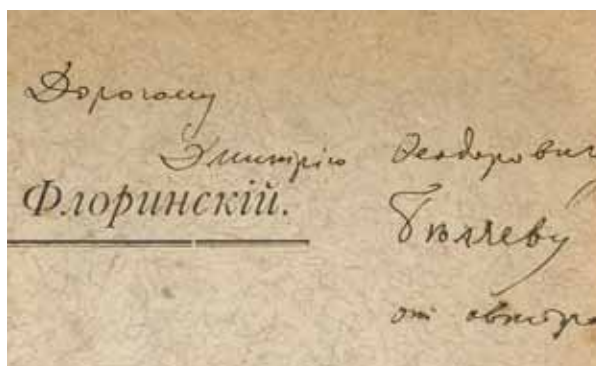 Дорогому
Дмитрію Ѳеодорович
Флоринскій.
Бѣляеву
от автора